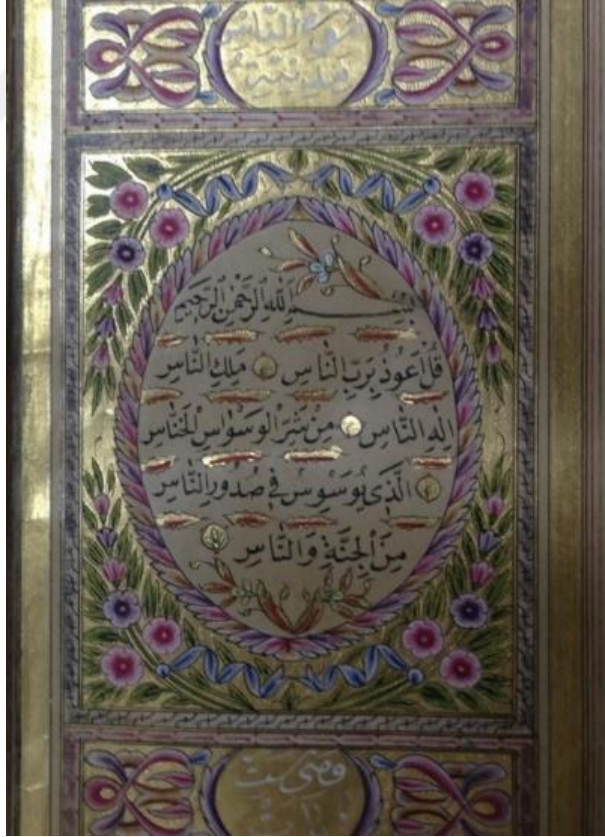 سورة الناس
مدنية
بسم الله الرحمن الرحيم
قُلْ أَعُوذُ بِرَبِّ النَّاسِ مَلِكِ النَّاسِ
إِلَهِ النَّاسِ مِنْ شَرِّ الْوَسْوَاسِ الْخَنَّاسِ
الَّذِي يُوَسْوِسُ فِي صُدُورِ النَّاسِ
مِنَ الْجِنَّةِ وَالنَّاسِ